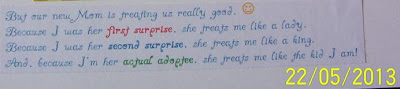 But our new Mom is treating us really good. 😊
Because I was her first surprise, she treats me like a lady.
Because I was her second surprise, she treats me like a king.
And, because I'm her actual adoptee, she treats me like the kid I am!
22/05/2013